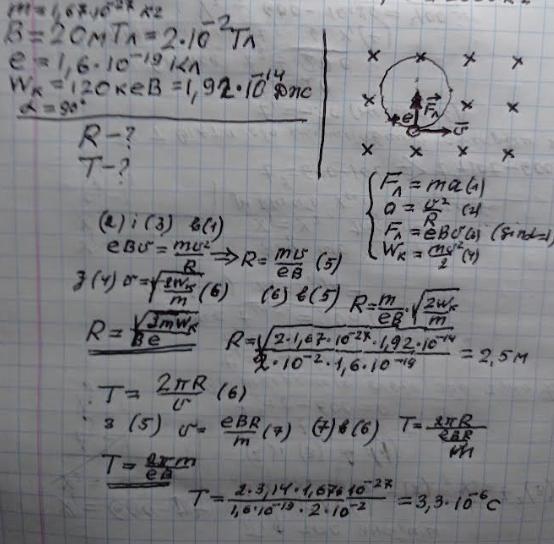 m = 1,67·10⁻²⁷ кг
B = 20мТл = 2·10⁻² Тл
e = 1,6·10⁻¹⁹ Кл
Wк = 120 кеВ = 1,92·10⁻¹⁴ Дж
α = 90°
R - ?
T - ?
+e F⃗л v⃗
Fл = ma (1)
a = v²/R (2)
Fл = eBv (3) (sin α = 1)
Wк = mv²/2 (4)
(2) і (3) в (1)
eBv = mv²/R ⇒ R = mv/eB (5)
З (4) v = √(2Wк/m) (6) (6) в (5) R = m/eB · √(2Wк/m)
R = √(2mWк)/Be R = √(2·1,67·10⁻²⁷·1,92·10⁻¹⁴)/2·10⁻²·1,6·10⁻¹⁹ = 2,5 м
T = 2πR/v (6)
З (5) v = eBR/m (7) (7) в (6) T = 2πR/(eBR/m)
T = 2πm/eB
T = 2·3,14·1,67·10⁻²⁷/1,6·10⁻¹⁹·2·10⁻² = 3,3·10⁻⁶ с